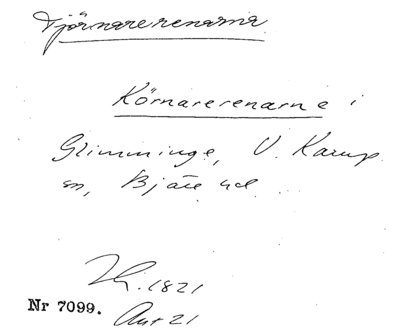 Tjörnarerenarna
Körnarerenarne i
Glimminge, V. Karup
sn, Bjäre hd
1821
Nr 7099.
21